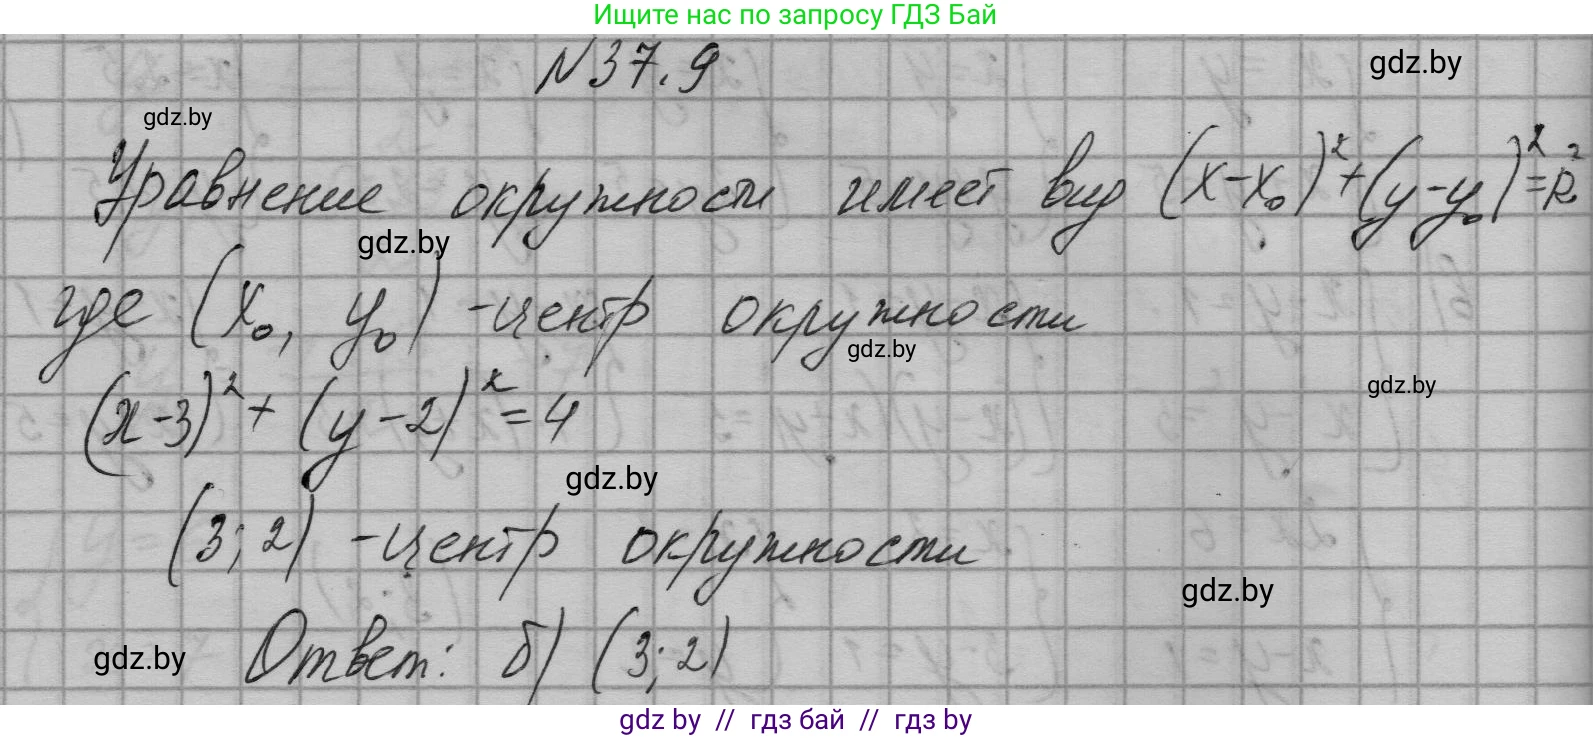 Ищите нас по запросу ГДЗ Бай
N37.9
gdz.by
gdz.by
Уравнение окружности имеет вид (x-x₀)²+(y-y₀)²=R²
gdz.by
где (x₀, y₀) -центр окружности
gdz.by
gdz.by
(x-3)²+(y-2)²=4
gdz.by
(3;2) -центр окружности
gdz.by
gdz.by
Ответ: б) (3;2)
gdz by // гдз бай // гдз by